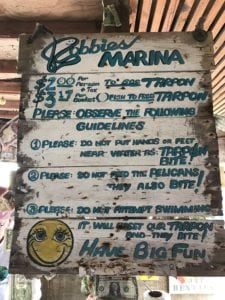 Bobbies MARINA
$2.00 Per Person + Tax TO SEE TARPON
$3.17 Per Bucket OF FISH TO FEED TARPON
PLEASE OBSERVE THE FOLLOWING
GUIDELINES
① PLEASE: DO NOT PUT HANDS OR FEET
NEAR WATER AS TARPON
BITE!
② PLEASE: DO NOT FEED THE PELICANS
THEY ALSO BITE!
③ PLEASE: DO NOT ATTEMPT SWIMMING
IT WILL UPSET OUR TARPON
AND THEY BITE!
HAVE BIG FUN